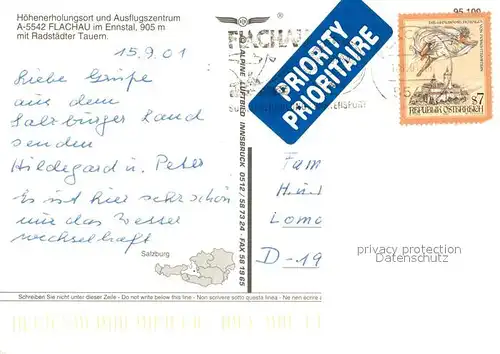 Höhenerholungsort und Ausflugszentrum
A-5542 FLACHAU im Ennstal, 905 m
mit Radstädter Tauern.
95 100
15.9.01
Liebe Grüße
aus dem
Salzburger Land
senden
Hildegard u. Peter
Es ist hier sehr schön
nur das Wetter
wechselhaft
Salzburg
ALPINE LUFTBILD INNSBRUCK 0512 / 58 73 24 - FAX 58 19 85
FLACHAU
PRIORITY
PRIORITAIRE
REPUBLIK ÖSTERREICH
S7
Fam
Lomo
D-19
privacy protection
DATENSCHUTZ
Schreiben Sie nicht unter dieser Zeile - Do not write below this line - Non scrivere sotto questa linea - Ne